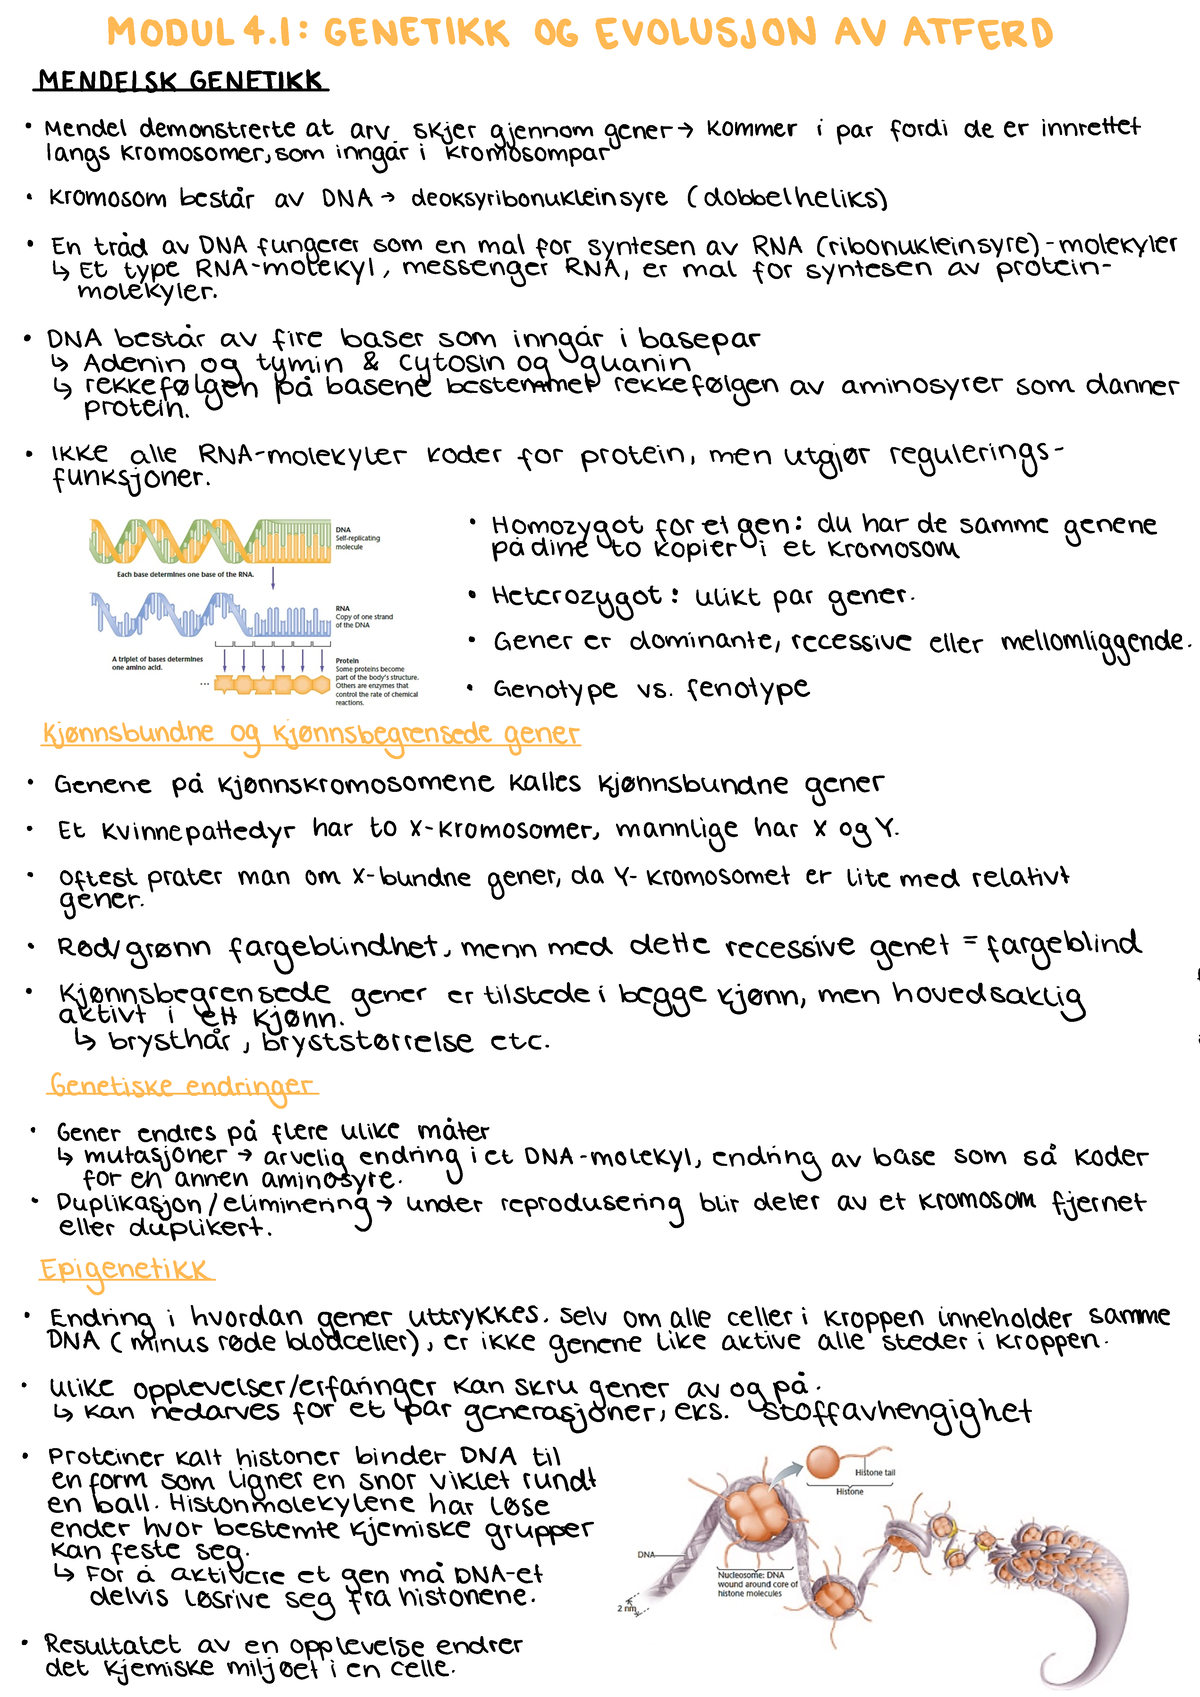 MODUL 4.1: GENETIKK OG EVOLUSJON AV ATFERD
MENDELSK GENETIKK
• Mendel demonstrerte at arv. skjer gjennom gener → kommer i par fordi de er innrettet
langs kromosomer, som inngår i kromosompar
• Kromosom består av DNA → deoksyribonukleinsyre (dobbelheliks)
• En tråd av DNA fungerer som en mal for syntesen av RNA (ribonukleinsyre)-molekyler
↳ Et type RNA-molekyl, messenger RNA, er mal for syntesen av protein-
molekyler.
• DNA består av fire baser som inngår i basepar
↳ Adenin og tymin & cytosin og guanin
↳ rekkefølgen på basene bestemmer rekkefølgen av aminosyrer som danner
protein.
• Ikke alle RNA-molekyler koder for protein, men utgjør regulerings-
funksjoner.
DNA
Self-replicating
molecule
Each base determines one base of the RNA.
RNA
Copy of one strand
of the DNA
A triplet of bases determines
one amino acid.
Protein
Some proteins become
part of the body's structure.
Others are enzymes that
control the rate of chemical
reactions.
...
• Homozygot for et gen: du har de samme genene
på dine to kopier i et kromosom
• Heterozygot: ulikt par gener.
• Gener er dominante, recessive eller mellomliggende.
• Genotype vs. fenotype
Kjønnsbundne og kjønnsbegrensede gener
• Genene på kjønnskromosomene kalles kjønnsbundne gener
• Et kvinnepattedyr har to X-kromosomer, mannlige har X og Y.
• Oftest prater man om X-bundne gener, da Y-kromosomet er lite med relativt
gener.
• Rød/grønn fargeblindhet, menn med dette recessive genet = fargeblind
• Kjønnsbegrensede gener er tilstede i begge kjønn, men hovedsaklig
aktivt i ett kjønn.
↳ brysthår, bryststørrelse etc.
Genetiske endringer
• Gener endres på flere ulike måter
↳ mutasjoner → arvelig endring i et DNA-molekyl, endring av base som så koder
for en annen aminosyre.
• Duplikasjon/eliminering → under reprodusering blir deler av et kromosom fjernet
eller duplikert.
Epigenetikk
• Endring i hvordan gener uttrykkes. Selv om alle celler i kroppen inneholder samme
DNA (minus røde blodceller), er ikke genene like aktive alle steder i kroppen.
• Ulike opplevelser/erfaringer kan skru gener av og på.
↳ Kan nedarves for et par generasjoner, eks. stoffavhengighet
• Proteiner kalt histoner binder DNA til
en form som ligner en snor viklet rundt
en ball. Histonmolekylene har løse
ender hvor bestemte kjemiske grupper
kan feste seg.
↳ For å aktivere et gen må DNA-et
delvis løsrive seg fra histonene.
• Resultatet av en opplevelse endrer
det kjemiske miljøet i en celle.
Histone tail
Histone
DNA
Nucleosome: DNA
wound around core of
histone molecules
2 nm